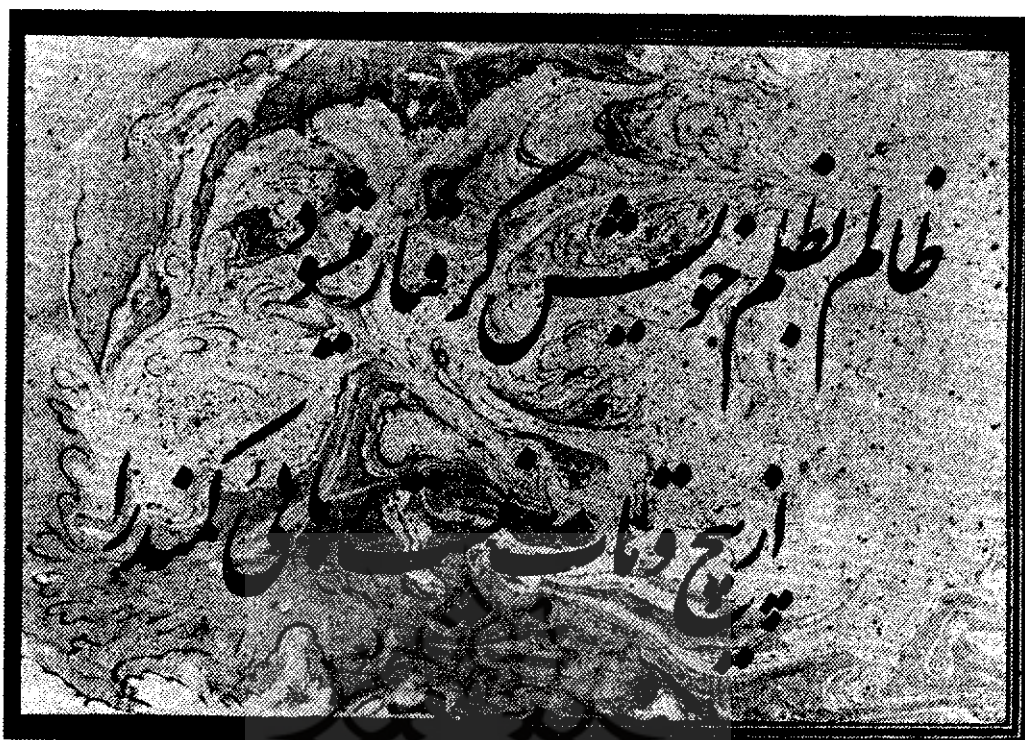 ظالم بظلم خویش گرفتار میشود
از پیچ و تاب نیست رهائی کمند را